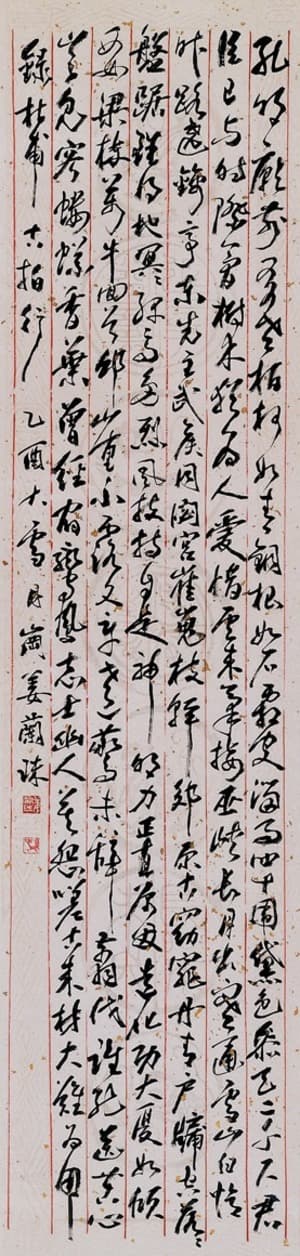 孔明廟前有老柏柯如青銅根如石霜皮溜雨四十圍黛色參天二千尺君
臣已與時際會樹木猶為人愛惜雲來氣接巫峽長月出寒通雪山白憶
昨路遶錦亭東先主武侯同閟宮崔嵬枝幹郊原古窈窕丹青戶牖空落落
盤踞雖得地冥冥孤高多烈風扶持自是神明力正直原因造化功大廈如傾
要梁棟萬牛回首邱山重不露文章世已驚未辭翦伐誰能送苦心
豈免容螻蟻香葉曾經宿鸞鳳志士幽人莫怨嗟古來材大難為用
錄杜甫古柏行 乙酉大雪 月崗姜蘭珠